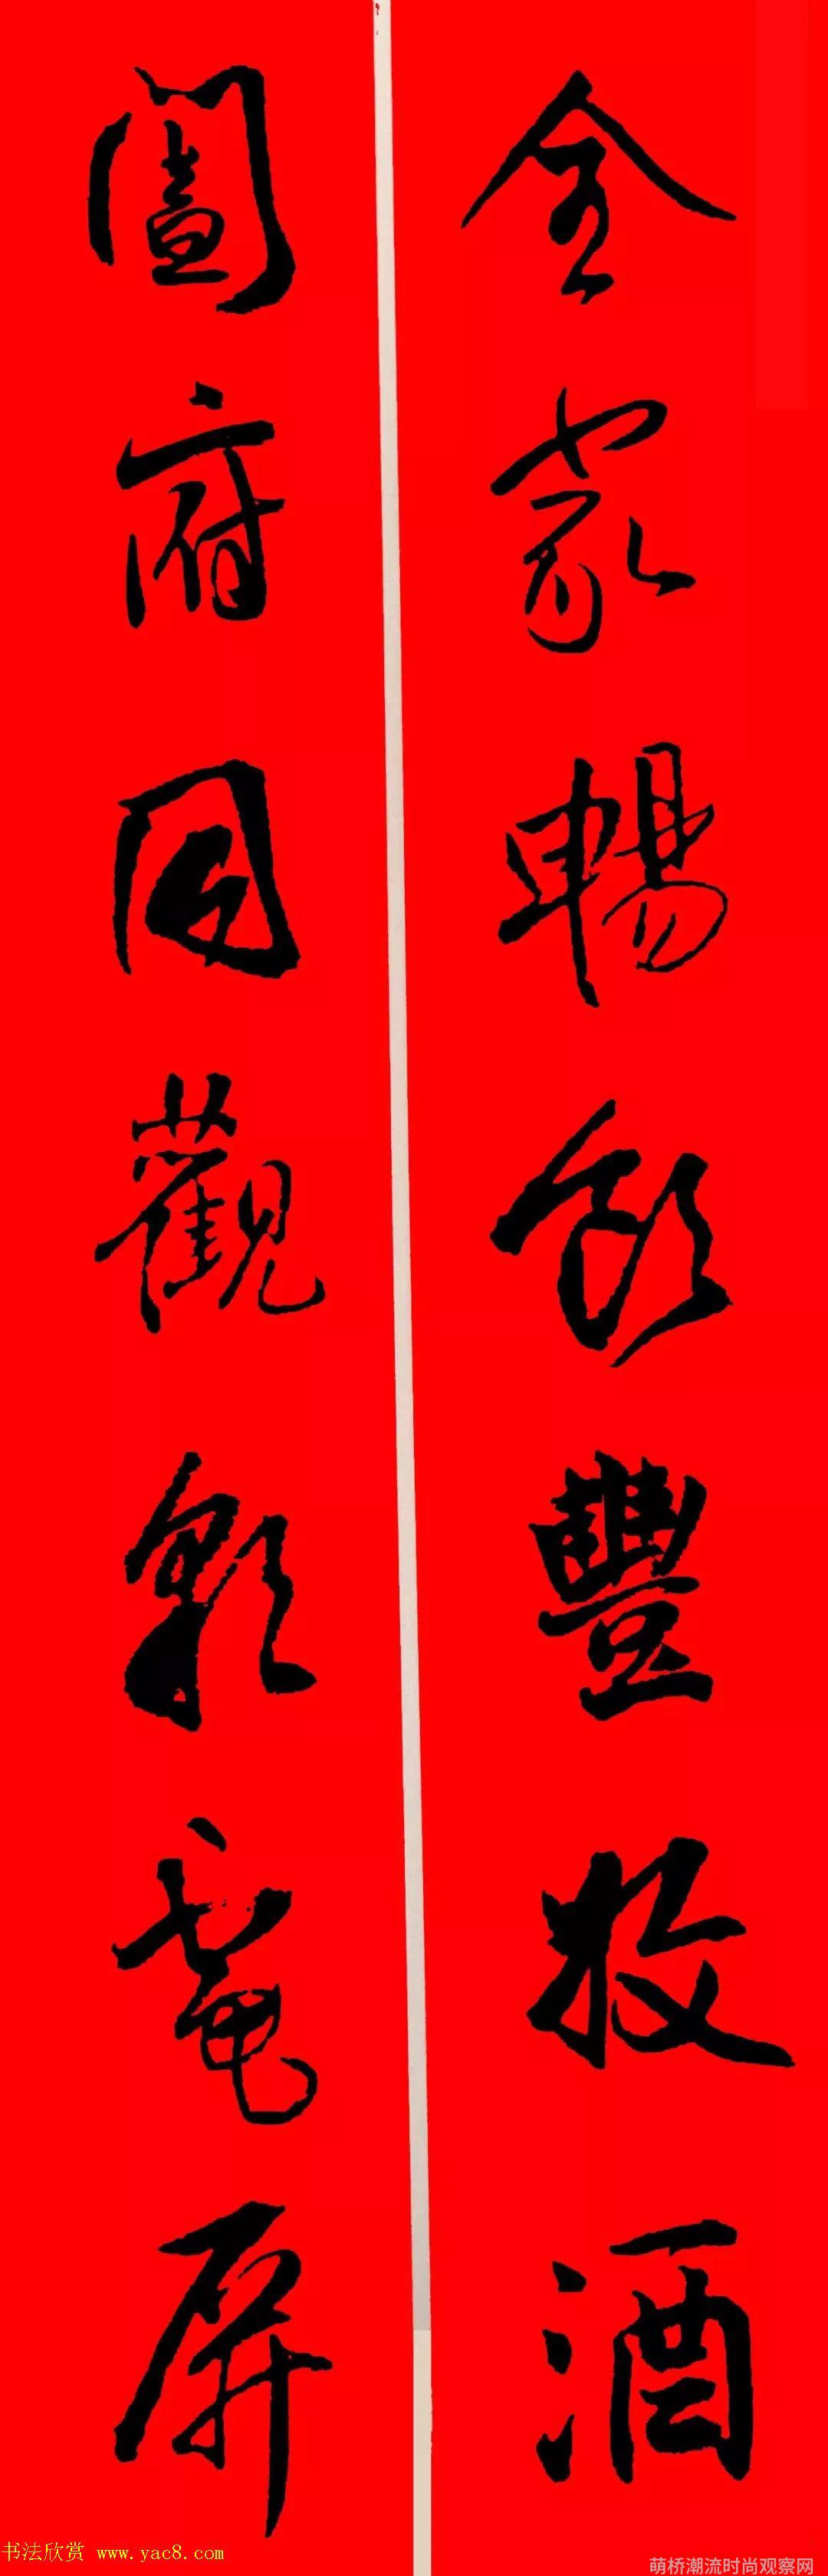 全家暢飲豐收酒
闔府同觀彩電屏
书法欣赏 www.yac8.com
萌桥潮流时尚观察网